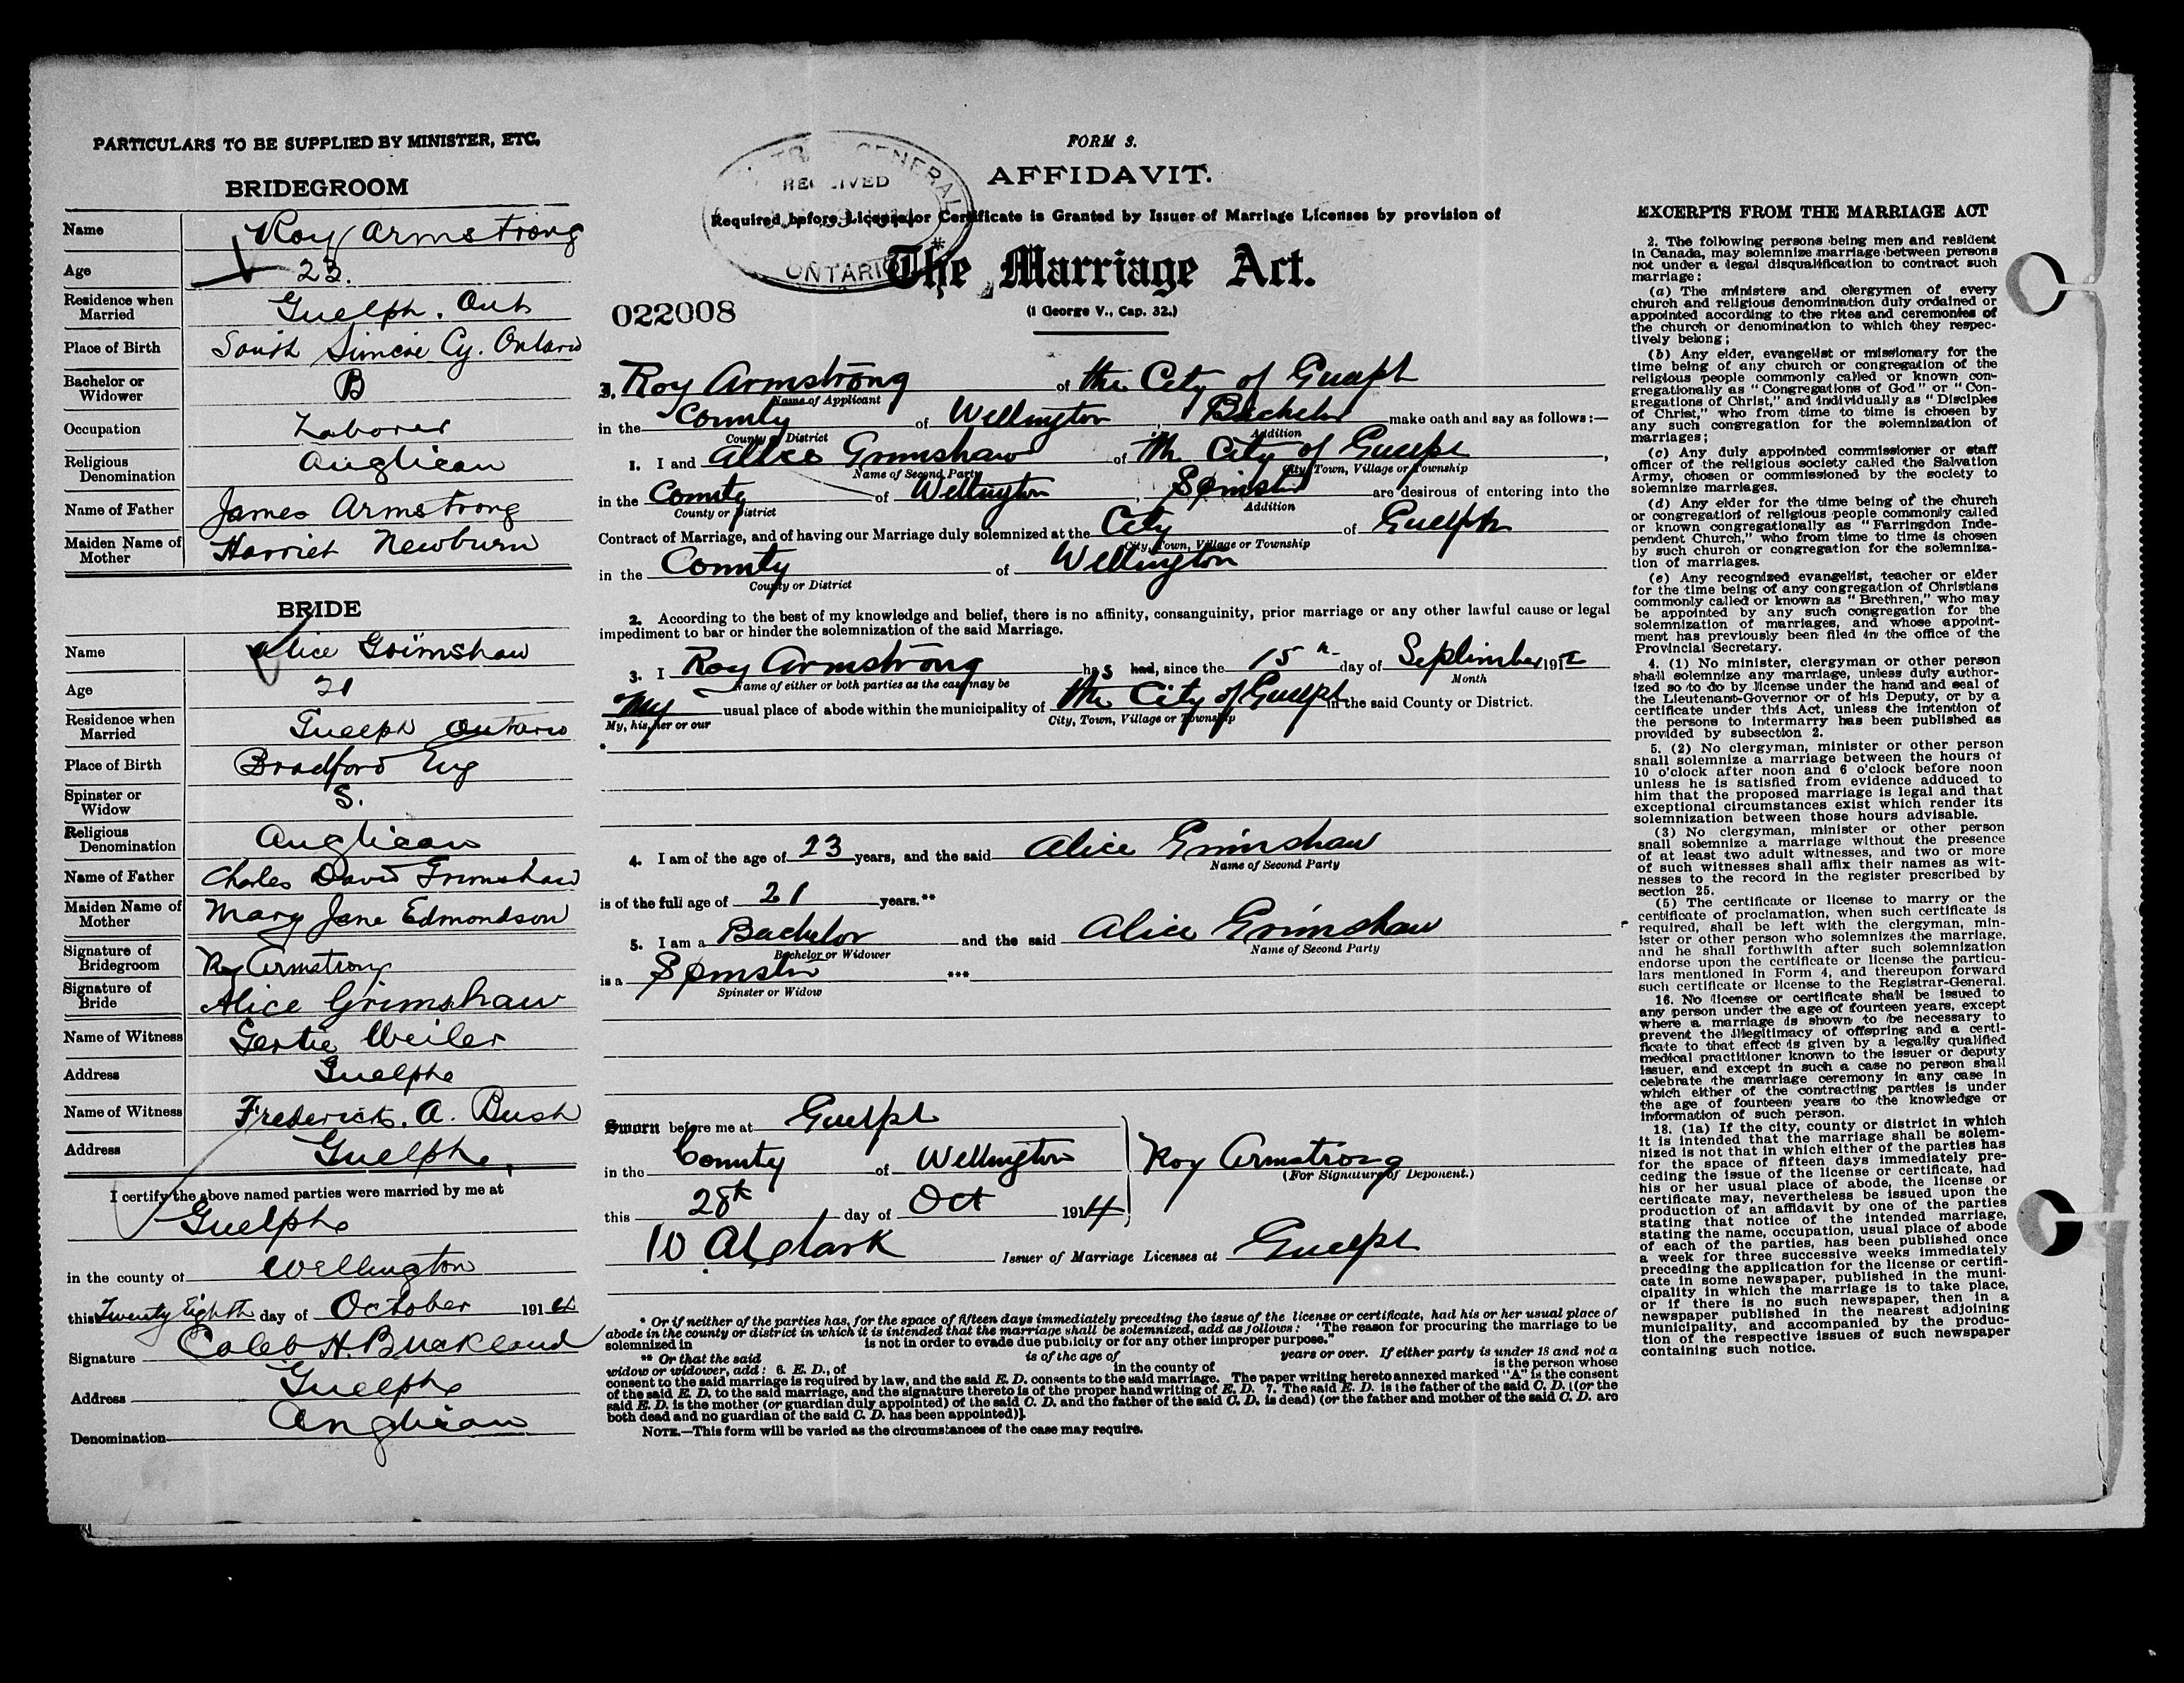 PARTICULARS TO BE SUPPLIED BY MINISTER, ETC.
BRIDEGROOM
Name Roy Armstrong
Age 23.
Residence when Married Guelph. Ont
Place of Birth South Simcoe Cy. Ontario
Bachelor or Widower B
Occupation Laborer
Religious Denomination Anglican
Name of Father James Armstrong
Maiden Name of Mother Harriet Newburn
BRIDE
Name Alice Grimshaw
Age 21
Residence when Married Guelph Ontario
Place of Birth Bradford Eng
Spinster or Widow S.
Religious Denomination Anglican
Name of Father Charles David Grimshaw
Maiden Name of Mother Mary Jane Edmondson
Signature of Bridegroom Roy Armstrong
Signature of Bride Alice Grimshaw
Name of Witness Gertie Weiler
Address Guelph
Name of Witness Frederick. A. Bush
Address Guelph.
I certify the above named parties were married by me at
Guelph
in the county of Wellington
this Twenty Eighth day of October 1914
Signature Caleb H. Buckland
Address Guelph
Denomination Anglican
FORM 3.
AFFIDAVIT.
GENERAL
RECEIVED
ONTARIO
Required before License or Certificate is Granted by Issuer of Marriage Licenses by provision of
The Marriage Act.
(1 George V., Cap. 32.)
022008
I, Roy Armstrong of the City of Guelph
Name of Applicant
in the County of Wellington, Bachelor make oath and say as follows:—
County or District Addition
1. I and Alice Grimshaw of the City of Guelph,
Name of Second Party City, Town, Village or Township
in the County of Wellington, Spinster are desirous of entering into the
County or District Addition
Contract of Marriage, and of having our Marriage duly solemnized at the City of Guelph
City, Town, Village or Township
in the County of Wellington
County or District
2. According to the best of my knowledge and belief, there is no affinity, consanguinity, prior marriage or any other lawful cause or legal
impediment to bar or hinder the solemnization of the said Marriage.
3. I Roy Armstrong has had, since the 15th day of September 191
Name of either or both parties as the case may be Month
My usual place of abode within the municipality of the City of Guelph in the said County or District.
My, his, her or our City, Town, Village or Township
*
4. I am of the age of 23 years, and the said Alice Grimshaw
Name of Second Party
is of the full age of 21 years.**
5. I am a Bachelor and the said Alice Grimshaw
Bachelor or Widower Name of Second Party
is a Spinster ***
Spinster or Widow
Sworn before me at Guelph
in the County of Wellington
Roy Armstrong
(For Signature of Deponent.)
this 28th day of Oct 1914
Clark Issuer of Marriage Licenses at Guelph
* Or if neither of the parties has, for the space of fifteen days immediately preceding the issue of the license or certificate, had his or her usual place of
abode in the county or district in which it is intended that the marriage shall be solemnized, add as follows: "The reason for procuring the marriage to be
solemnized in is not in order to evade due publicity or for any other improper purpose."
** Or that the said is of the age of years or over. If either party is under 18 and not a
widow or widower, add: 6. E. D., of in the county of is the person whose
consent to the said marriage is required by law, and the said E. D. consents to the said marriage. The paper writing hereto annexed marked "A" is the consent
of the said E. D. to the said marriage, and the signature thereto is of the proper handwriting of E. D. 7. The said E. D. is the father of the said C. D. [(or the
said E. D. is the mother (or guardian duly appointed) of the said C. D. and the father of the said C. D. is dead) (or the father and mother of the said C. D. are
both dead and no guardian of the said C. D. has been appointed)].
NOTE.—This form will be varied as the circumstances of the case may require.
EXCERPTS FROM THE MARRIAGE ACT
2. The following persons being men and resident
in Canada, may solemnize marriage between persons
not under a legal disqualification to contract such
marriage:
(a) The ministers and clergymen of every
church and religious denomination duly ordained or
appointed according to the rites and ceremonies of
the church or denomination to which they respec-
tively belong;
(b) Any elder, evangelist or missionary for the
time being of any church or congregation of the
religious people commonly called or known con-
gregationally as "Congregations of God" or "Con-
gregations of Christ," and individually as "Disciples
of Christ," who from time to time is chosen by
any such congregation for the solemnization of
marriages;
(c) Any duly appointed commissioner or staff
officer of the religious society called the Salvation
Army, chosen or commissioned by the society to
solemnize marriages.
(d) Any elder for the time being of the church
or congregation of religious people commonly called
or known congregationally as "Farringdon Inde-
pendent Church," who from time to time is chosen
by such church or congregation for the solemniza-
tion of marriages.
(e) Any recognized evangelist, teacher or elder
for the time being of any congregation of Christians
commonly called or known as "Brethren," who may
be appointed by any such congregation for the
solemnization of marriages, and whose appoint-
ment has previously been filed in the office of the
Provincial Secretary.
4. (1) No minister, clergyman or other person
shall solemnize any marriage, unless duly author-
ized so to do by license under the hand and seal of
the Lieutenant-Governor or of his Deputy, or by a
certificate under this Act, unless the intention of
the persons to intermarry has been published as
provided by subsection 2.
5. (2) No clergyman, minister or other person
shall solemnize a marriage between the hours of
10 o'clock after noon and 6 o'clock before noon
unless he is satisfied from evidence adduced to
him that the proposed marriage is legal and that
exceptional circumstances exist which render its
solemnization between those hours advisable.
(3) No clergyman, minister or other person
shall solemnize a marriage without the presence
of at least two adult witnesses, and two or more
of such witnesses shall affix their names as wit-
nesses to the record in the register prescribed by
section 25.
(5) The certificate or license to marry or the
certificate of proclamation, when such certificate is
required, shall be left with the clergyman, min-
ister or other person who solemnizes the marriage,
and he shall forthwith after such solemnization
endorse upon the certificate or license the particu-
lars mentioned in Form 4, and thereupon forward
such certificate or license to the Registrar-General.
16. No license or certificate shall be issued to
any person under the age of fourteen years, except
where a marriage is shown to be necessary to
prevent the illegitimacy of offspring and a certi-
ficate to that effect is given by a legally qualified
medical practitioner known to the issuer or deputy
issuer, and except in such a case no person shall
celebrate the marriage ceremony in any case in
which either of the contracting parties is under
the age of fourteen years to the knowledge or
information of such person.
18. (1a) If the city, county or district in which
it is intended that the marriage shall be solem-
nized is not that in which either of the parties has
for the space of fifteen days immediately pre-
ceding the issue of the license or certificate, had
his or her usual place of abode, the license or
certificate may, nevertheless be issued upon the
production of an affidavit by one of the parties
stating that notice of the intended marriage,
stating the name, occupation, usual place of abode
of each of the parties, has been published once
a week for three successive weeks immediately
preceding the application for the license or certifi-
cate in some newspaper, published in the muni-
cipality in which the marriage is to take place,
or if there is no such newspaper, then in a
newspaper published in the nearest adjoining
municipality, and accompanied by the produc-
tion of the respective issues of such newspaper
containing such notice.